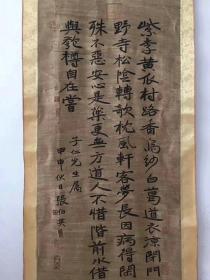 紫李黄瓜村路香烏紗白葛道衣涼閉門
野寺松陰轉欹枕風軒客夢長因病得閒
殊不惡安心是藥更無方道人不惜階前水借
與匏樽自在嘗
子仁先生屬
甲申伏日張伯英